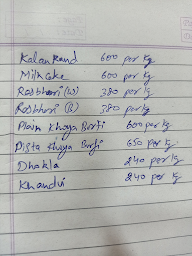 Kalankand 600 per kg
Milkcake 600 per kg
Rasbhari (W) 380 per kg
Rasbhari (B) 380 per kg
Plain Khoya Barfi 600 per kg
Pista Khoya Barfi 650 per kg
Dhokla 240 per kg
Khandvi 240 per kg